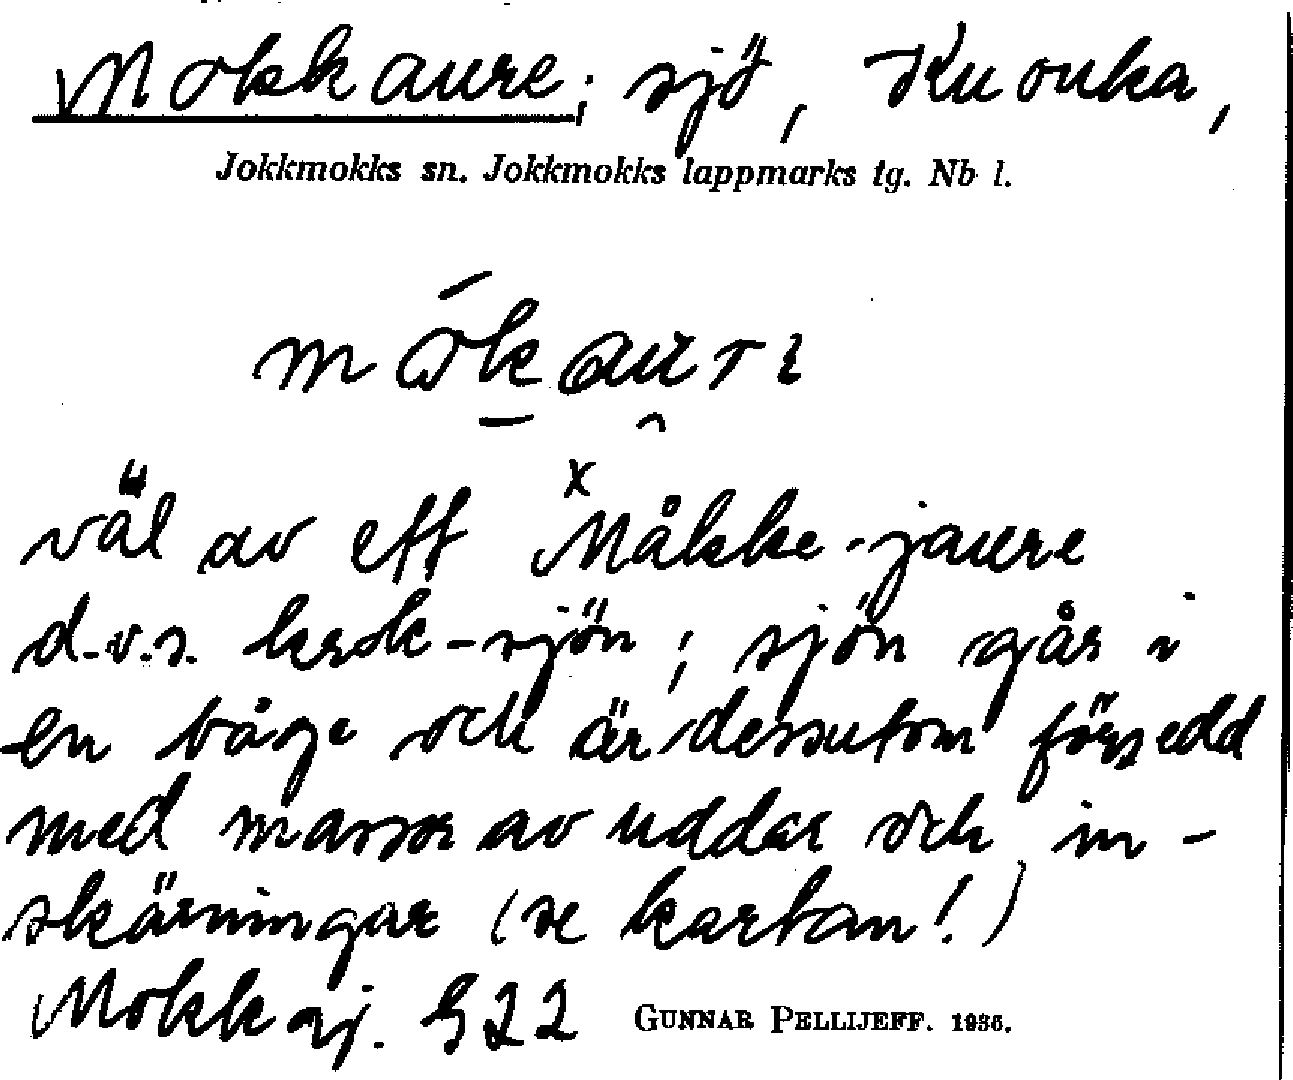 Mokkaure; sjö, Kuouka,
Jokkmokks sn. Jokkmokks lappmarks tg. Nb l.
väl av ett ˣMåkke-jaure
d.v.s. krok-sjön; sjön går i
en båge och är dessutom försedd
med massor av uddar och in-
skärningar (se kartan!)
Mokkaj. G22 GUNNAR PELLIJEFF. 1936.